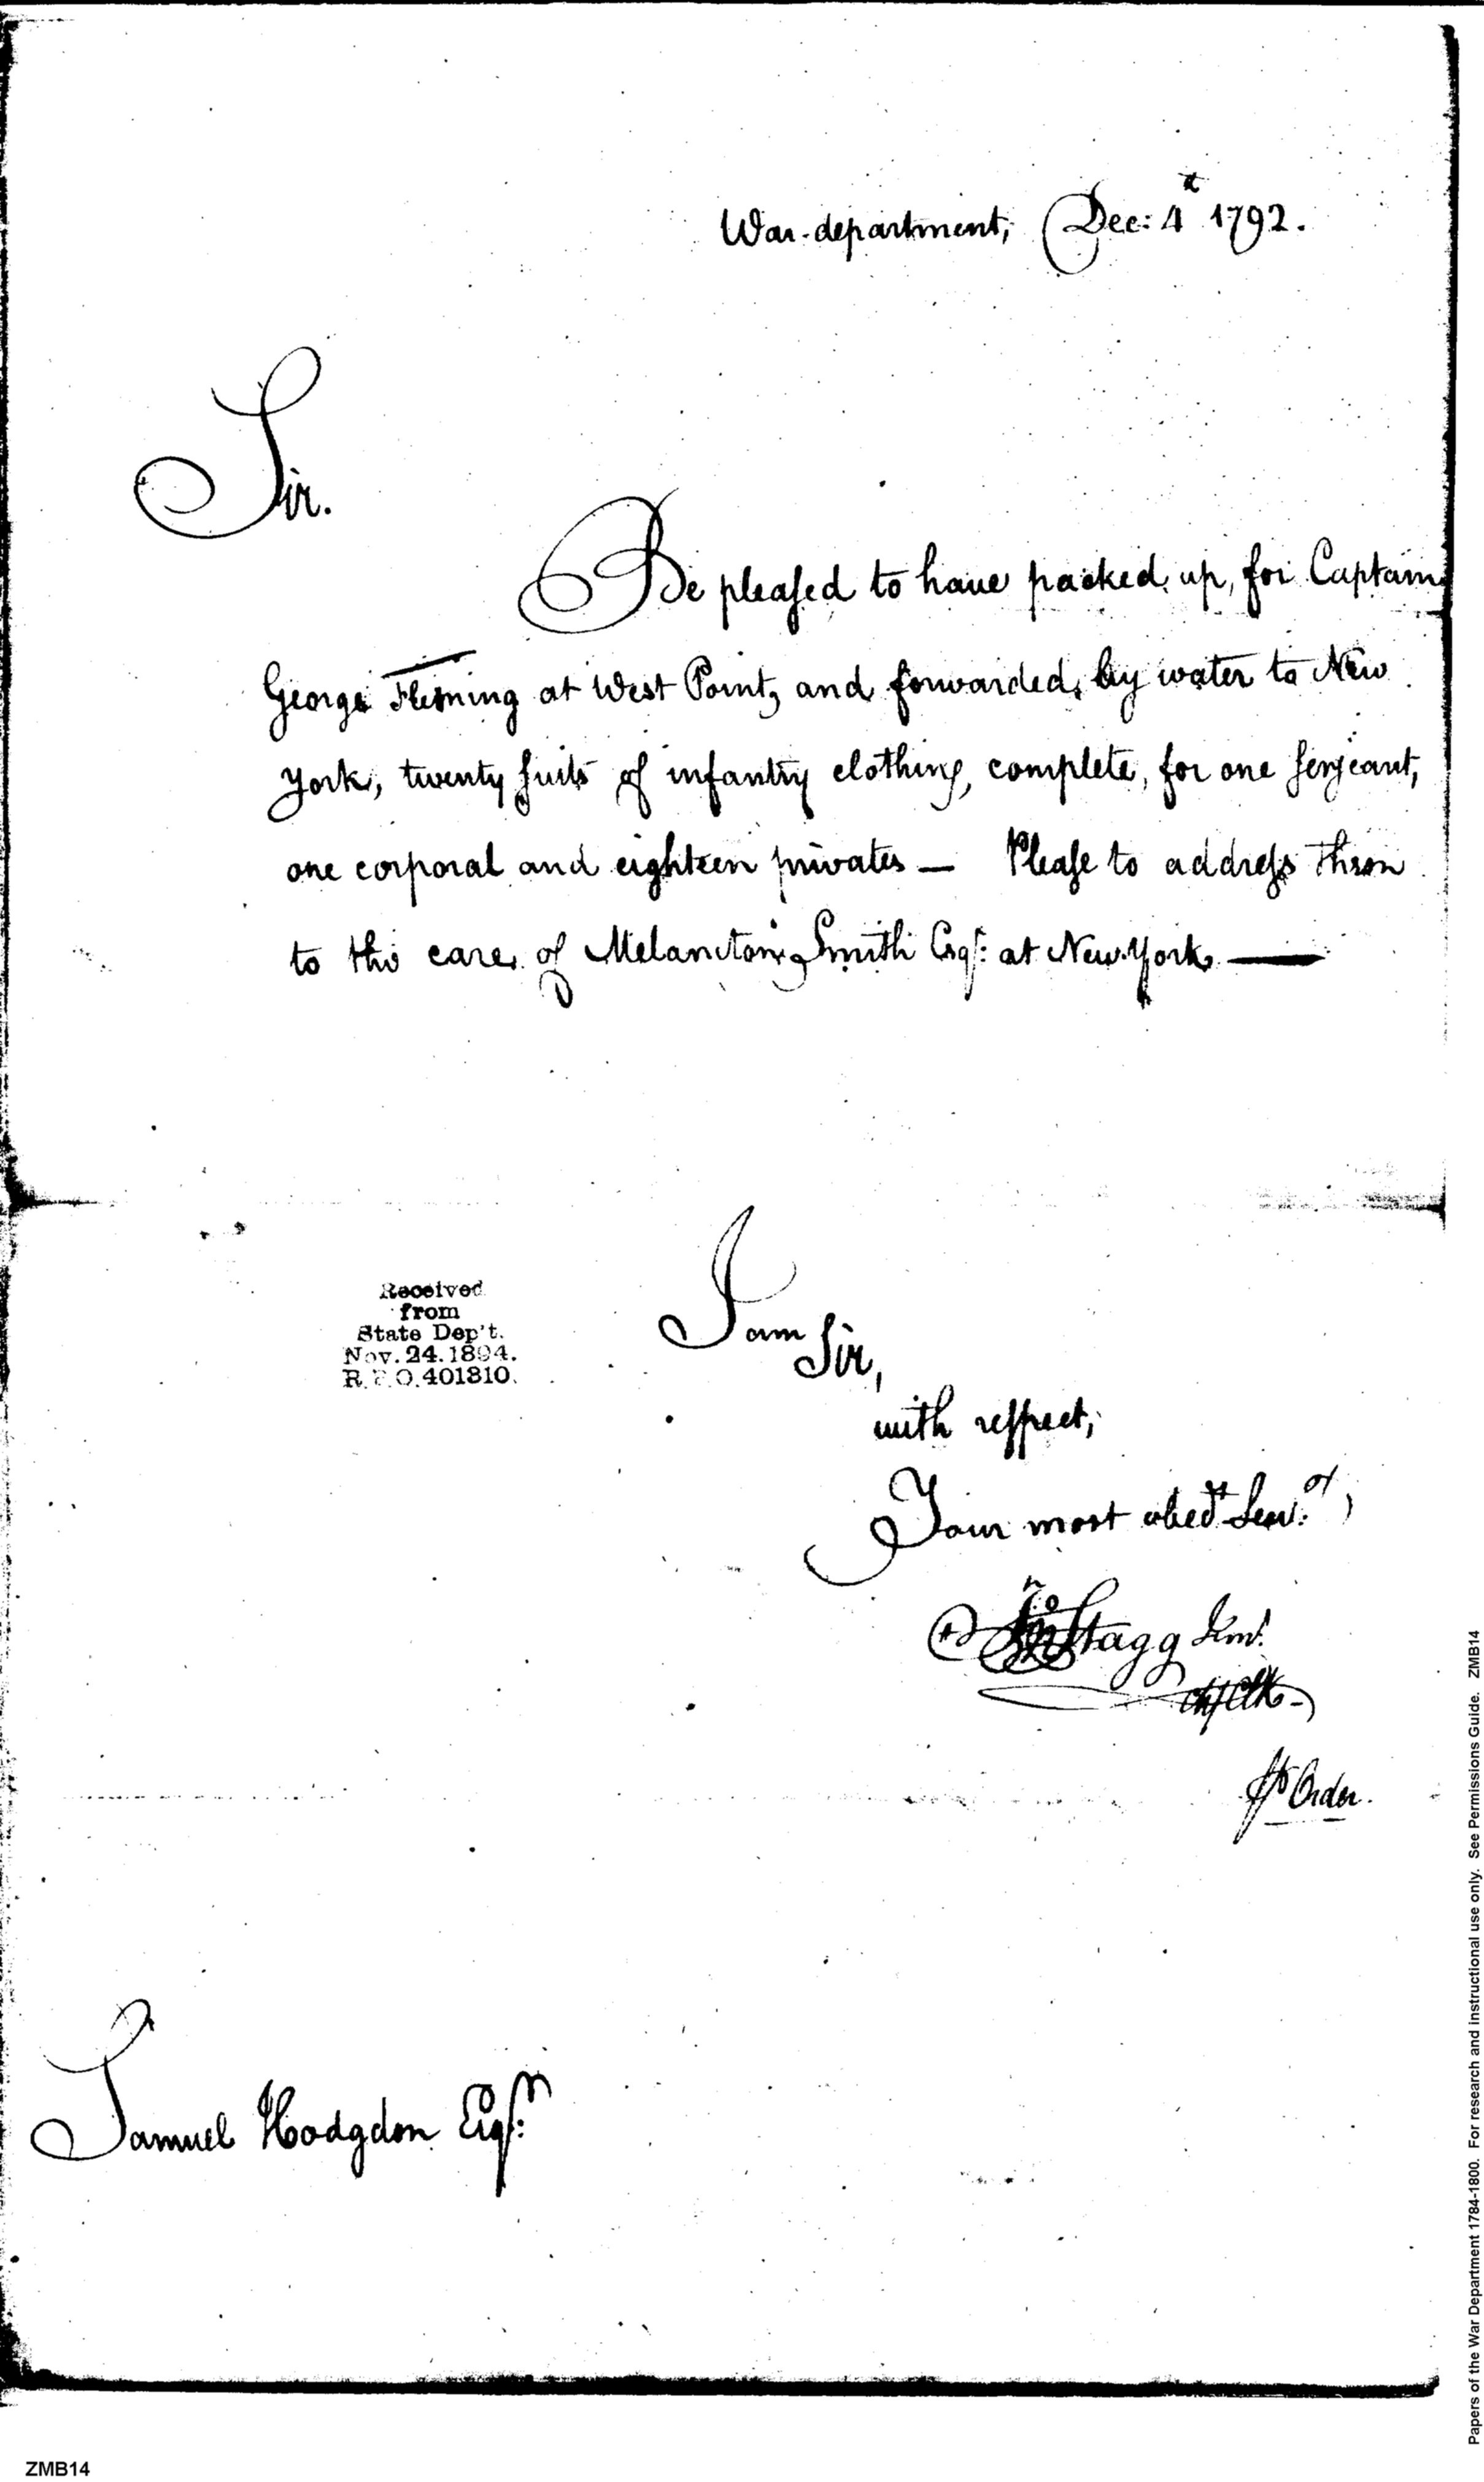 War-department, Dec: 4th 1792.
Sir.
Be pleased to have packed up, for Captain
George Fleming at West Point, and forwarded, by water to New
York, twenty suits of infantry clothing, complete, for one serjeant,
one corporal and eighteen privates — Please to address them
to the care of Melancton Smith Esqr: at New York —
Received
from
State Dep't.
Nov. 24. 1894.
R. & O. 401310.
I am
Sir,
with respect,
Your most obedt Servt,
Jno Stagg Junr.
Chf Clk -
Pr Order.
Samuel Hodgdon Esqr:
ZMB14
Papers of the War Department 1784-1800. For research and instructional use only. See Permissions Guide. ZMB14